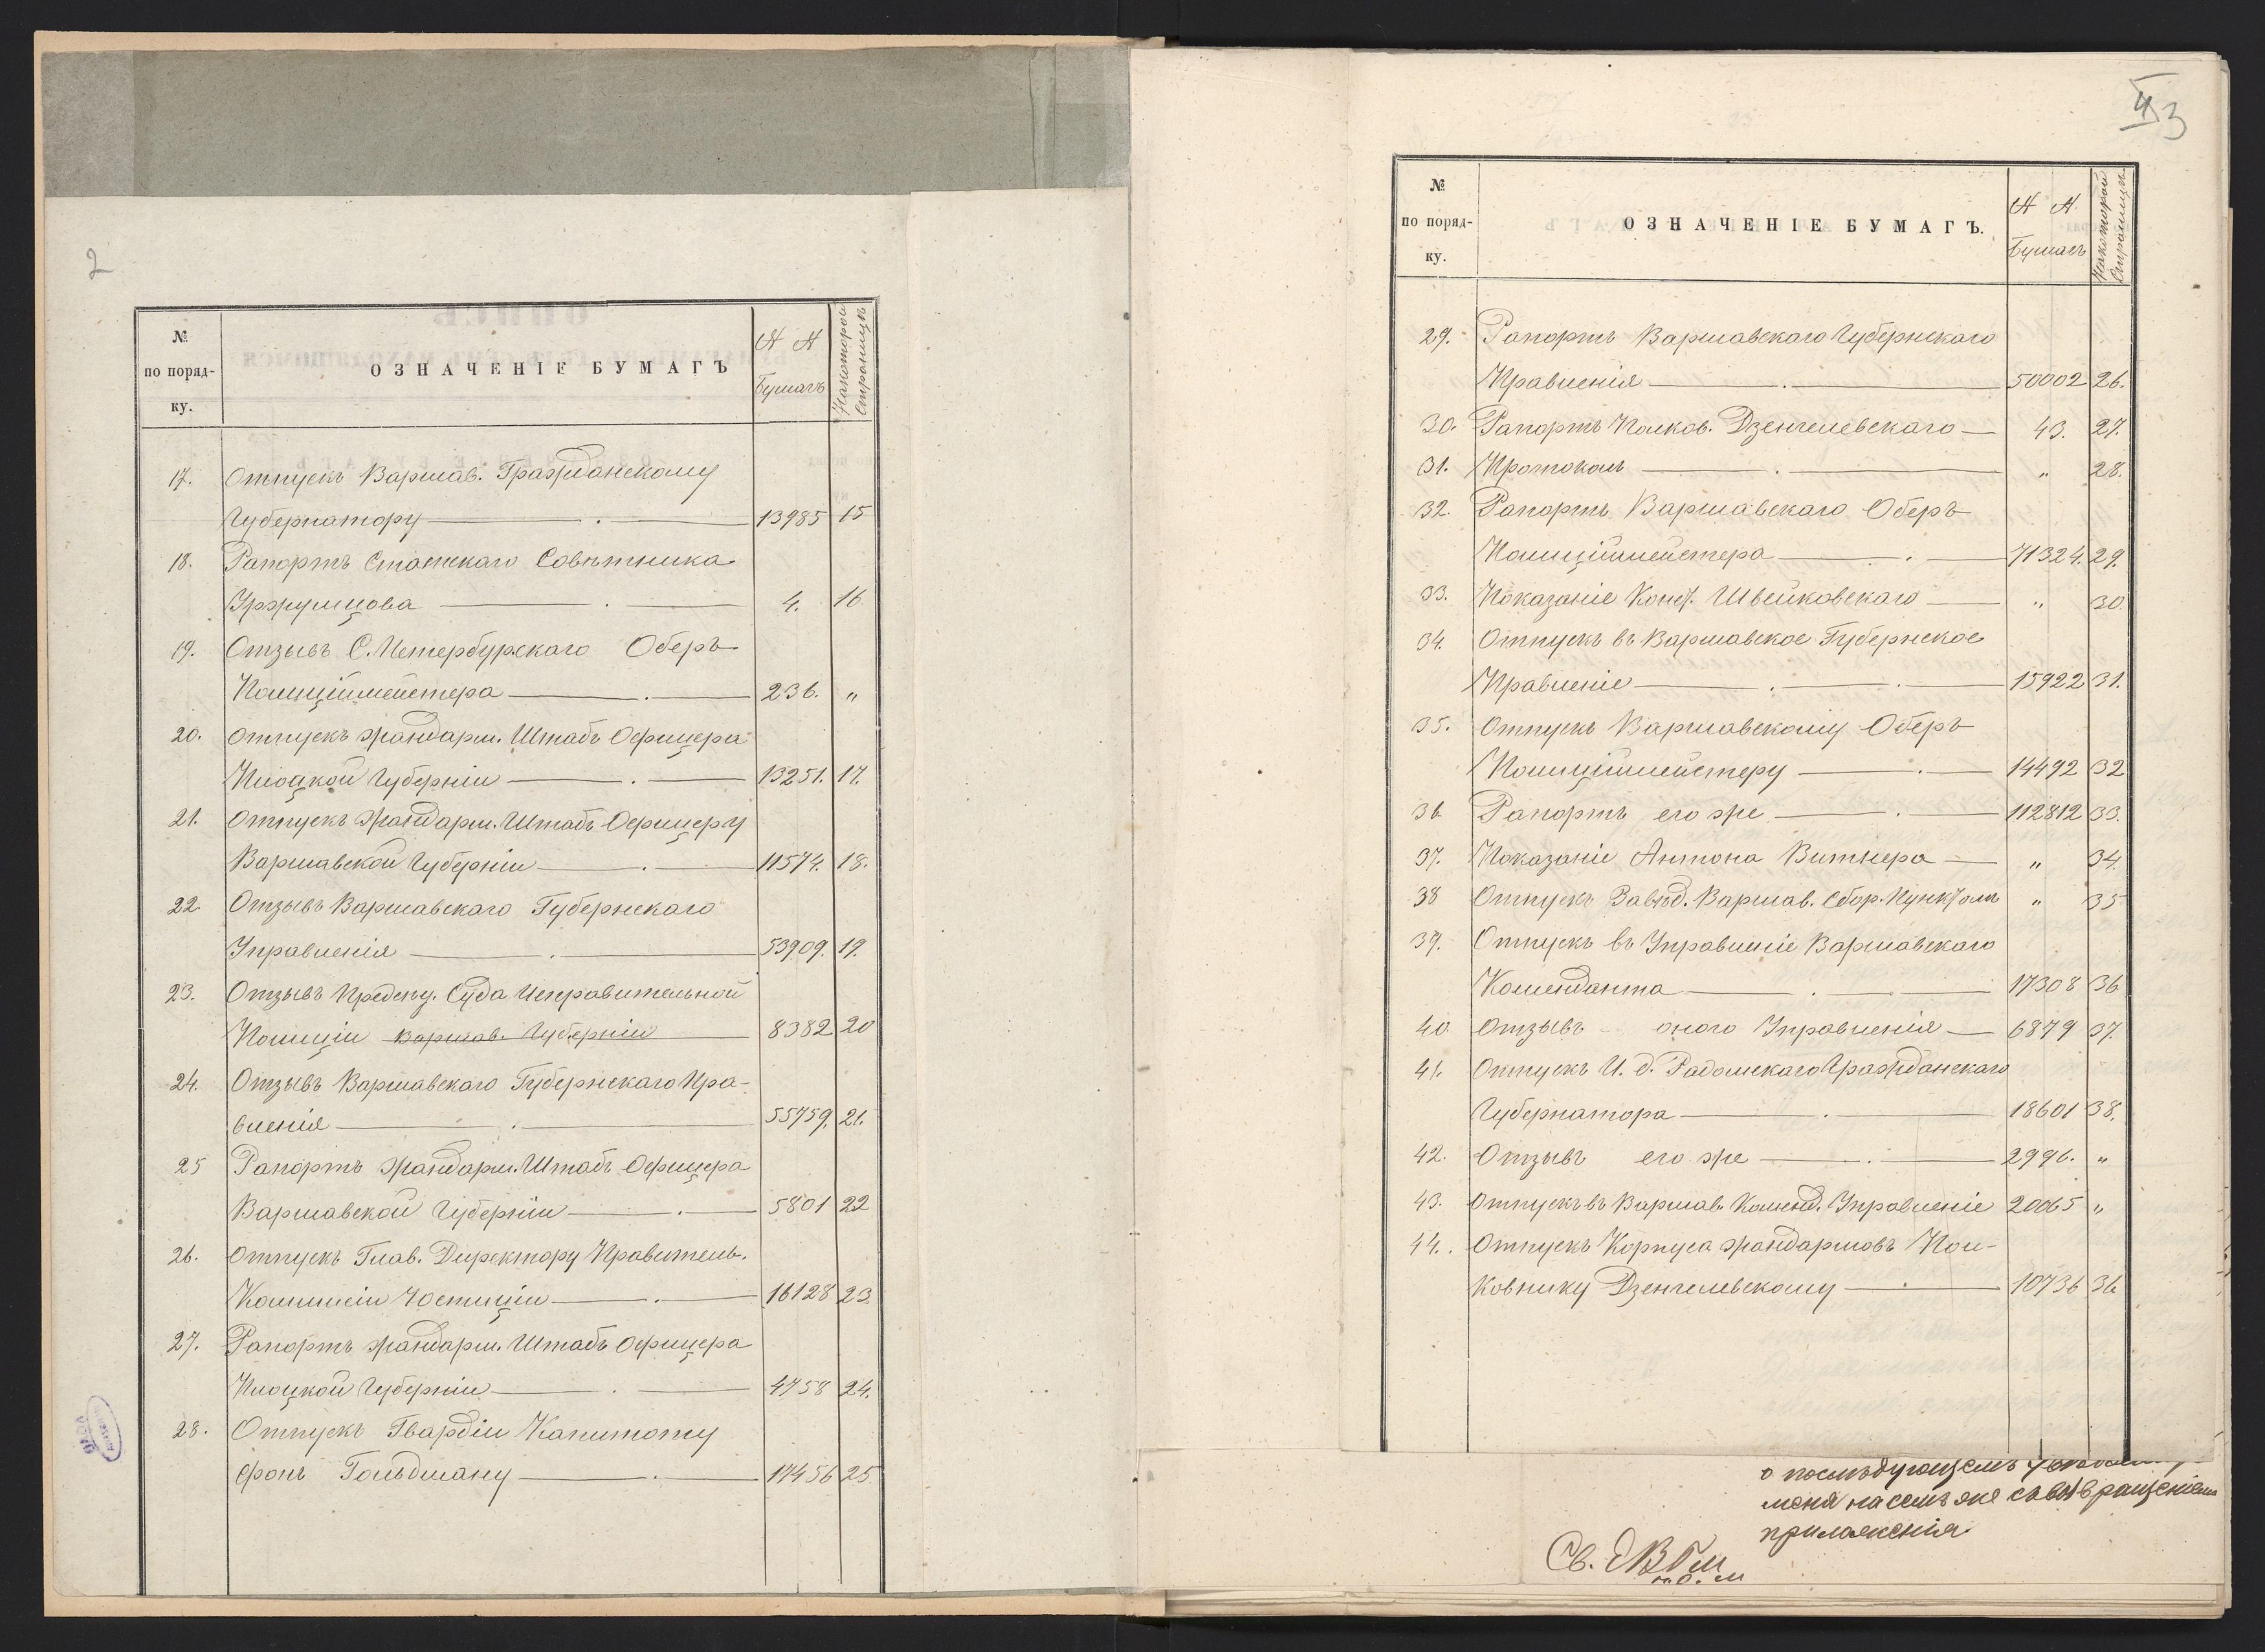 2
№
по поряд-
ку.
ОЗНАЧЕНІЕ БУМАГЪ
№ №
Бумагъ
На которой
Страницѣ
17. Отпускъ Варшав. Гражданскому
Губернатору 13985 15
18. Рапортъ Статскаго Совѣтника
4. 16
19. Отзывъ С. Петербургскаго Оберъ
Полиціймейстера 236. „
20. Отпускъ Жандарм. Штабъ Офицера
Плоцкой Губерніи 13251. 17.
21. Отпускъ Жандарм. Штабъ Офицеру
Варшавской Губерніи 11574. 18.
22. Отзывъ Варшавскаго Губернскаго
Управленія 53909. 19.
23. Отзывъ Предсѣд. Суда Исправительной
Полиціи Варшав. Губерніи 8382 20
24. Отзывъ Варшавскаго Губернскаго Пра-
вленія 55759. 21.
25 Рапортъ Жандарм. Штабъ Офицера
Варшавской Губерніи 5801 22
26. Отпускъ Глав. Директору Правитель.
Коммисіи Юстиціи 16128 23.
27. Рапортъ Жандарм. Штабъ Офицера
Плоцкой Губерніи 4758 24.
28. Отпускъ Гвардіи Капитану
фонъ Гольдману 17456 25.
3
№
по поряд-
ку.
ОЗНАЧЕНІЕ БУМАГЪ.
№ №
Бумагъ
На которой
Страницѣ
29. Рапортъ Варшавскаго Губернскаго
Правленія 50002 26.
30. Рапортъ Полков. Дзенгелевскаго 43. 27.
31. Протоколъ „ 28.
32. Рапортъ Варшавскаго Оберъ
Полиціймейстера 71324. 29.
33. Показаніе Конст. Швейковскаго „ 30
34. Отпускъ въ Варшавское Губернское
Правленіе 15922 31.
35. Отпускъ Варшавскому Оберъ
Полиціймейстеру 14492 32
36 Рапортъ его же 112812 33.
37. Показаніе Антона Витнера „ 34.
38 Отпускъ Завѣд. Варшав. Сбор. Пунктомъ „ 35
39. Отпускъ въ Управленіе Варшавскаго
Коменданта 17308 36
40. Отзывъ онаго Управленія 6879 37.
41. Отпускъ И. д. Радомскаго Гражданскаго
Губернатора 18601 38.
42. Отзывъ его же 2996. „
43. Отпускъ въ Варшав. Коменд. Управленіе 20065 „
44. Отпускъ Корпуса Жандармовъ Пол-
ковнику Дзенгелевскому 10736 36
о послѣдующемъ
меня на семъ же съ возвращеніемъ
приложенія.
Св.